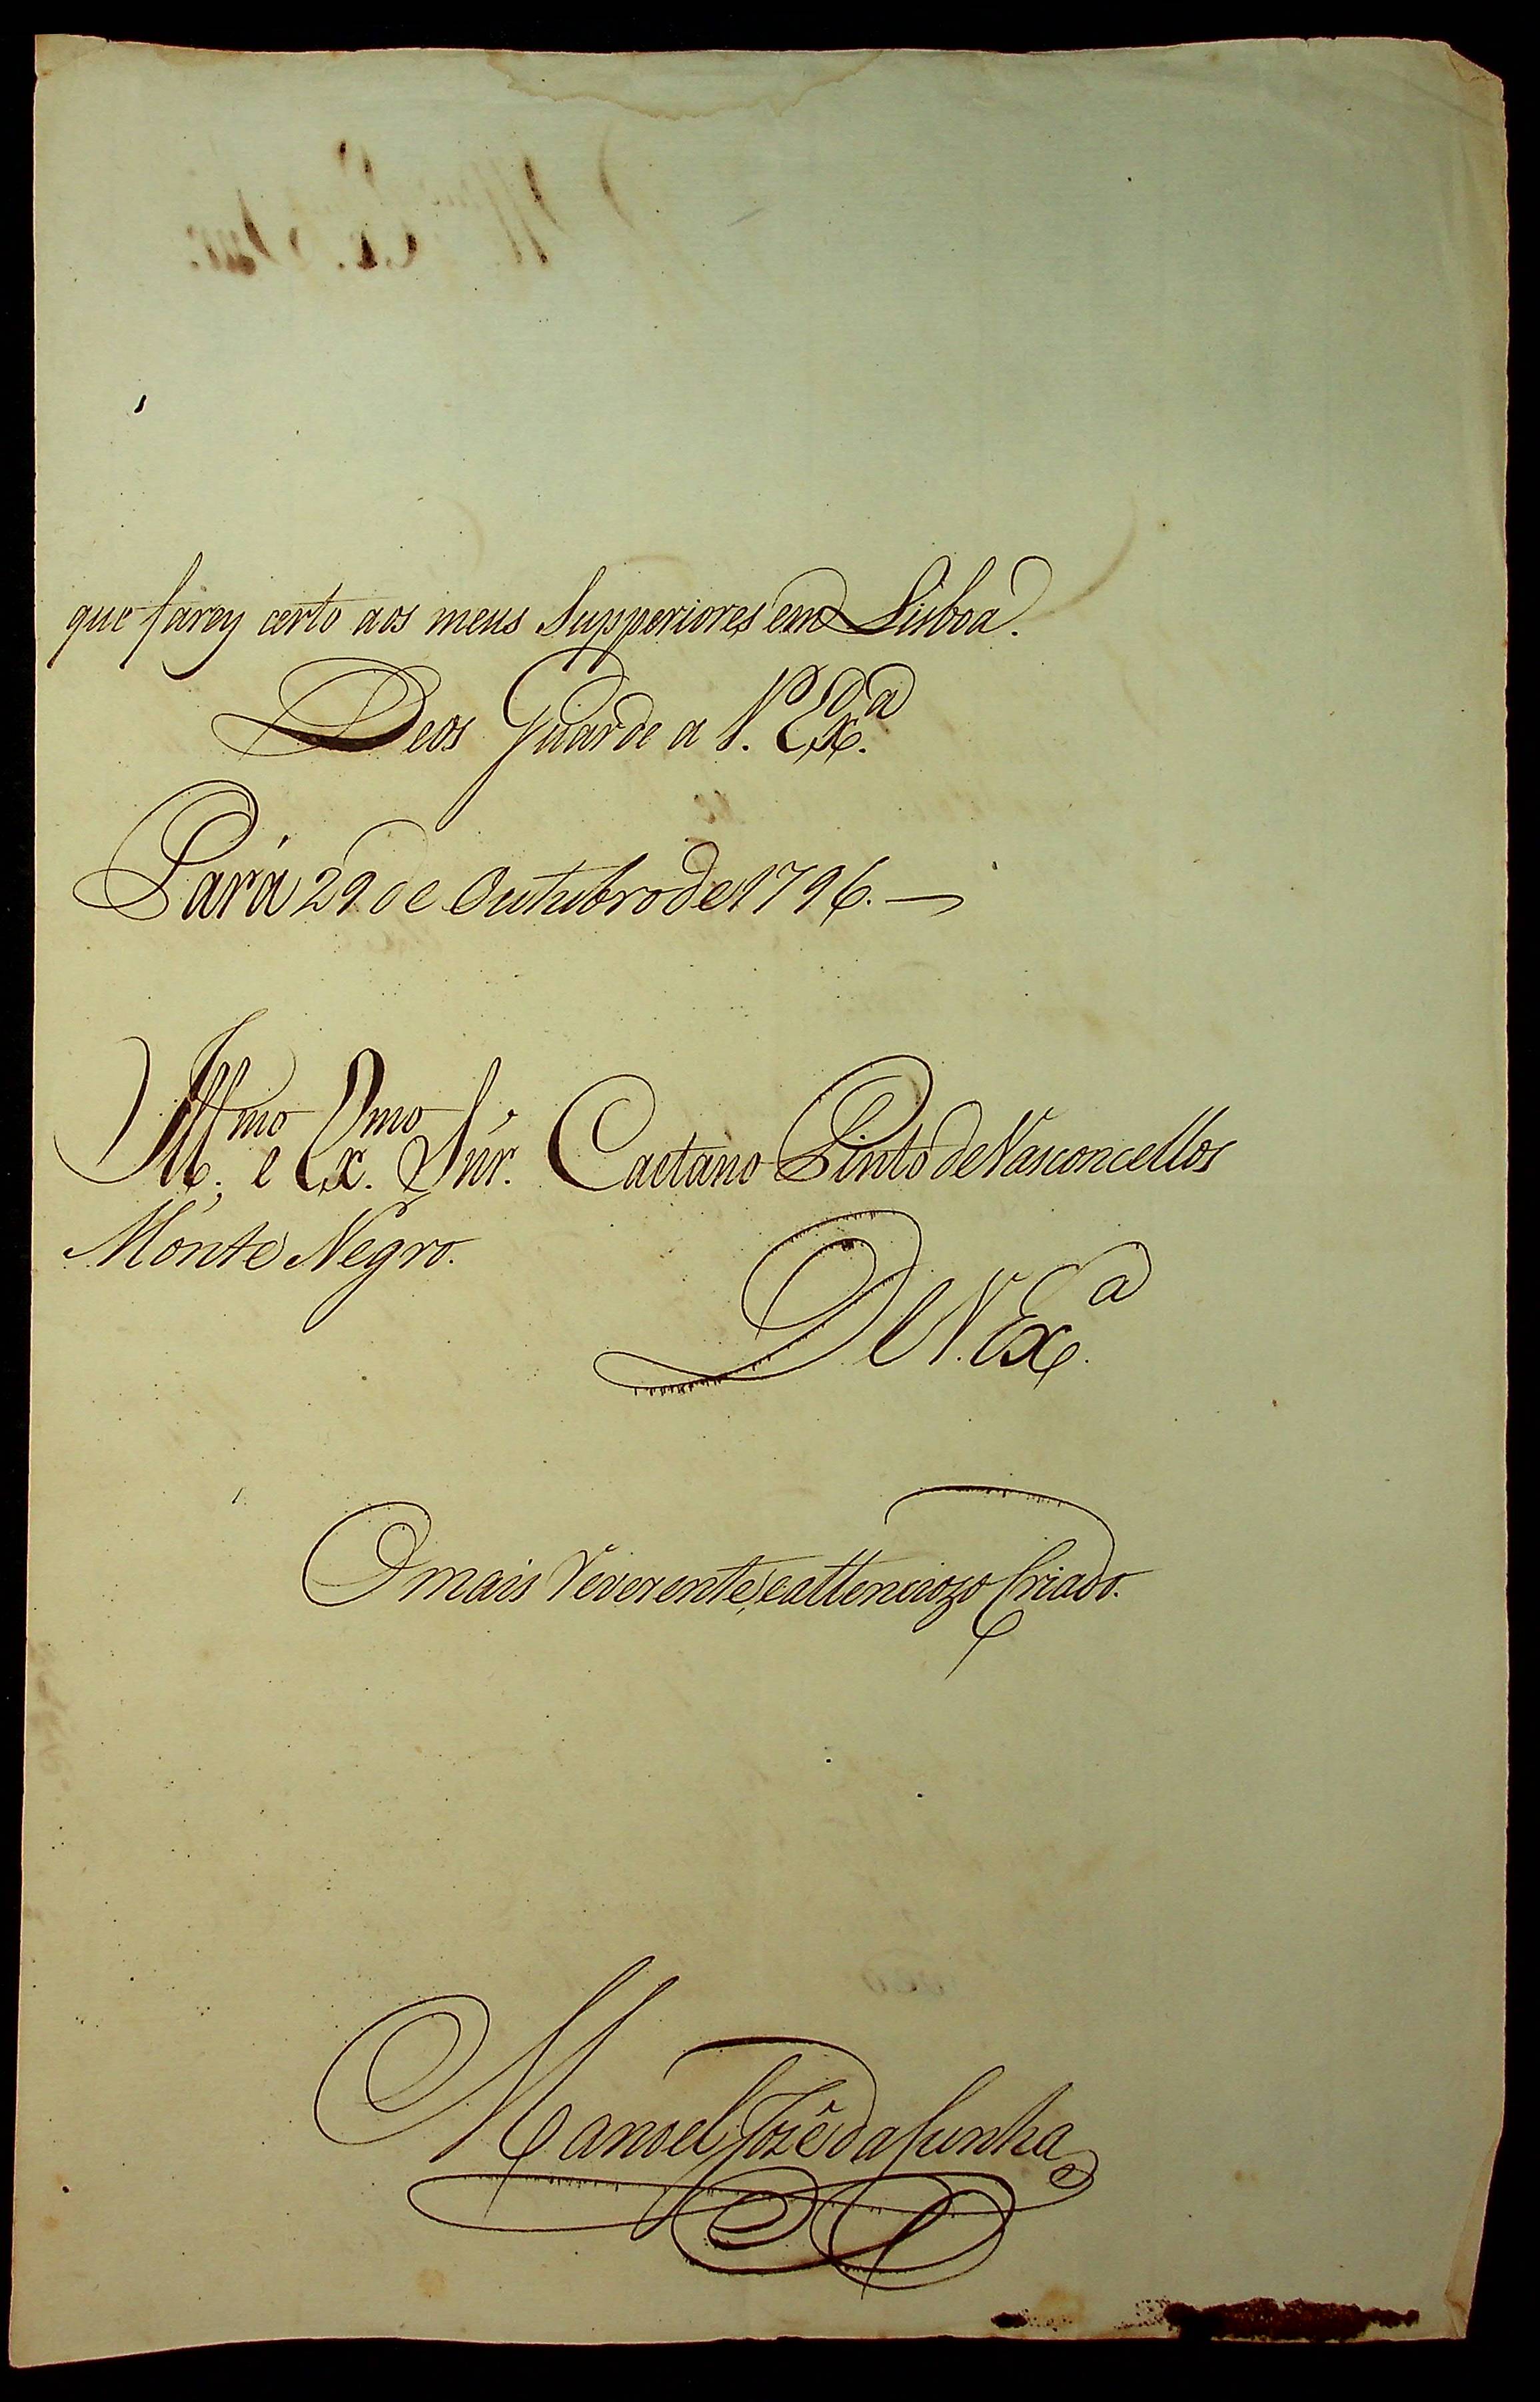 que farey certo aos meus Supperiores em Lisboa.
Deos Guarde a V. Ex.ª
Pará 29 de Outubro de 1796. —
Ill.mo e Ex.mo Snr. Caetano Pinto de Vasconcellos
Monte Negro.
De V. Ex.ª
O mais Reverente, e attenciozo Criado.
Manoel Jozê da Cunha